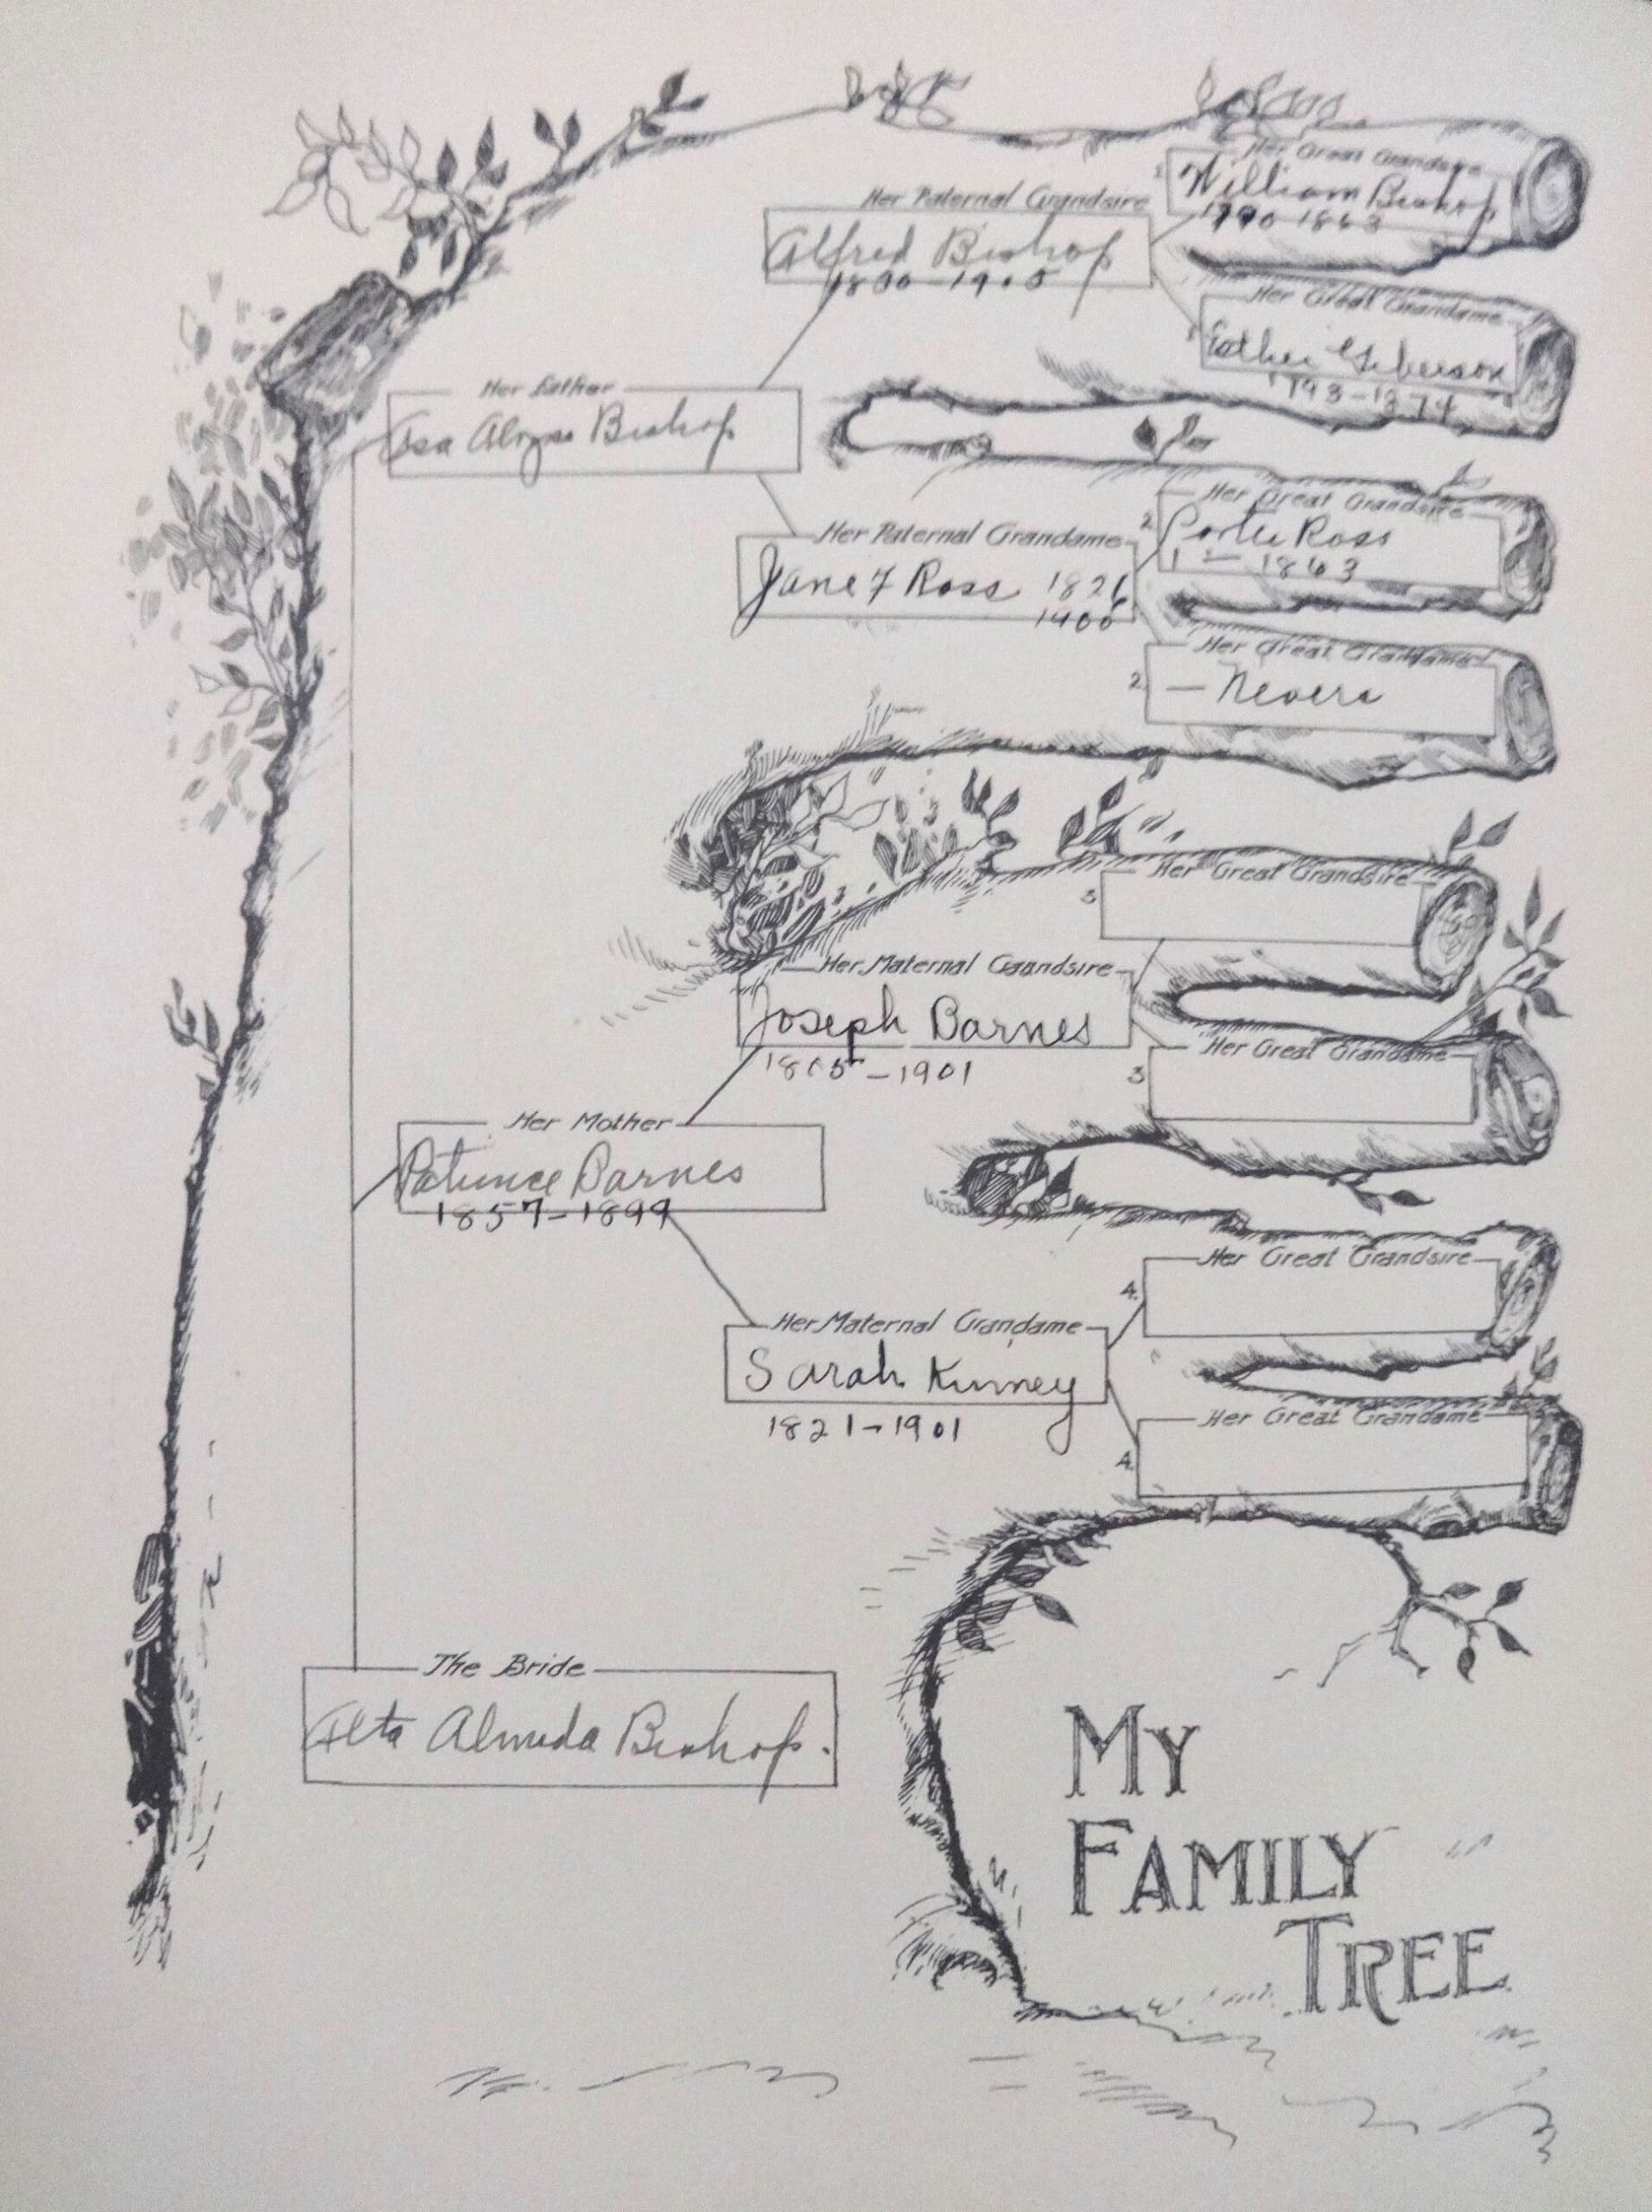 Her Great Grandsire
1.
William Bishop
1790-1863
Her Paternal Grandsire
Alfred Bishop
1830-1905
Her Great Grandame
1
Esther Giberson
1793-1874
Her Father
Asa Alonzo Bishop
Her Great Grandsire
2.
Porter Ross
1 — 1863
Her Paternal Grandame
Jane F Ross 1826
1906
Her Great Grandame
2.
— Nevers
Her Great Grandsire
3
Her Maternal Grandsire
Joseph Barnes
-1901
Her Great Grandame
3
Her Mother
Patience Barnes
1857-1899
Her Great Grandsire
4.
Her Maternal Grandame
Sarah Kinney
1821-1901
Her Great Grandame
4.
The Bride
Alta Almeda Bishop.
MY
FAMILY
TREE